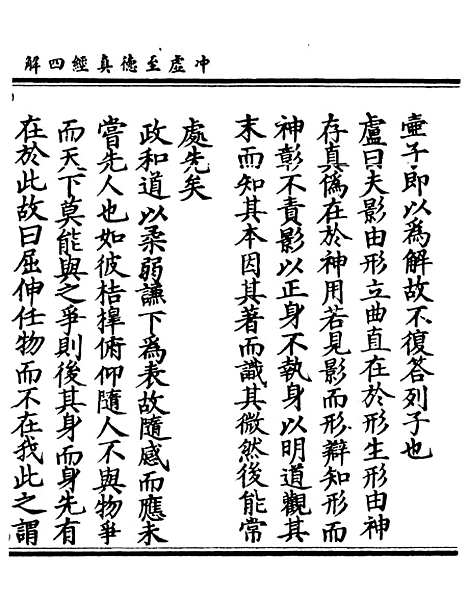 冲虛至德真經四解
壷子即以為解故不復答列子也
盧曰夫影由形立曲直在於形生形由神
存真偽在於神用若見影而形辯知形而
神彰不責影以正身不執身以明道觀其
末而知其本因其著而識其微然後能常
處先矣
政和道以柔弱謙下為表故隨感而應未
嘗先人也如彼桔橰俯仰隨人不與物爭
而天下莫能與之爭則後其身而身先有
在於此故曰屈伸任物而不在我此之謂